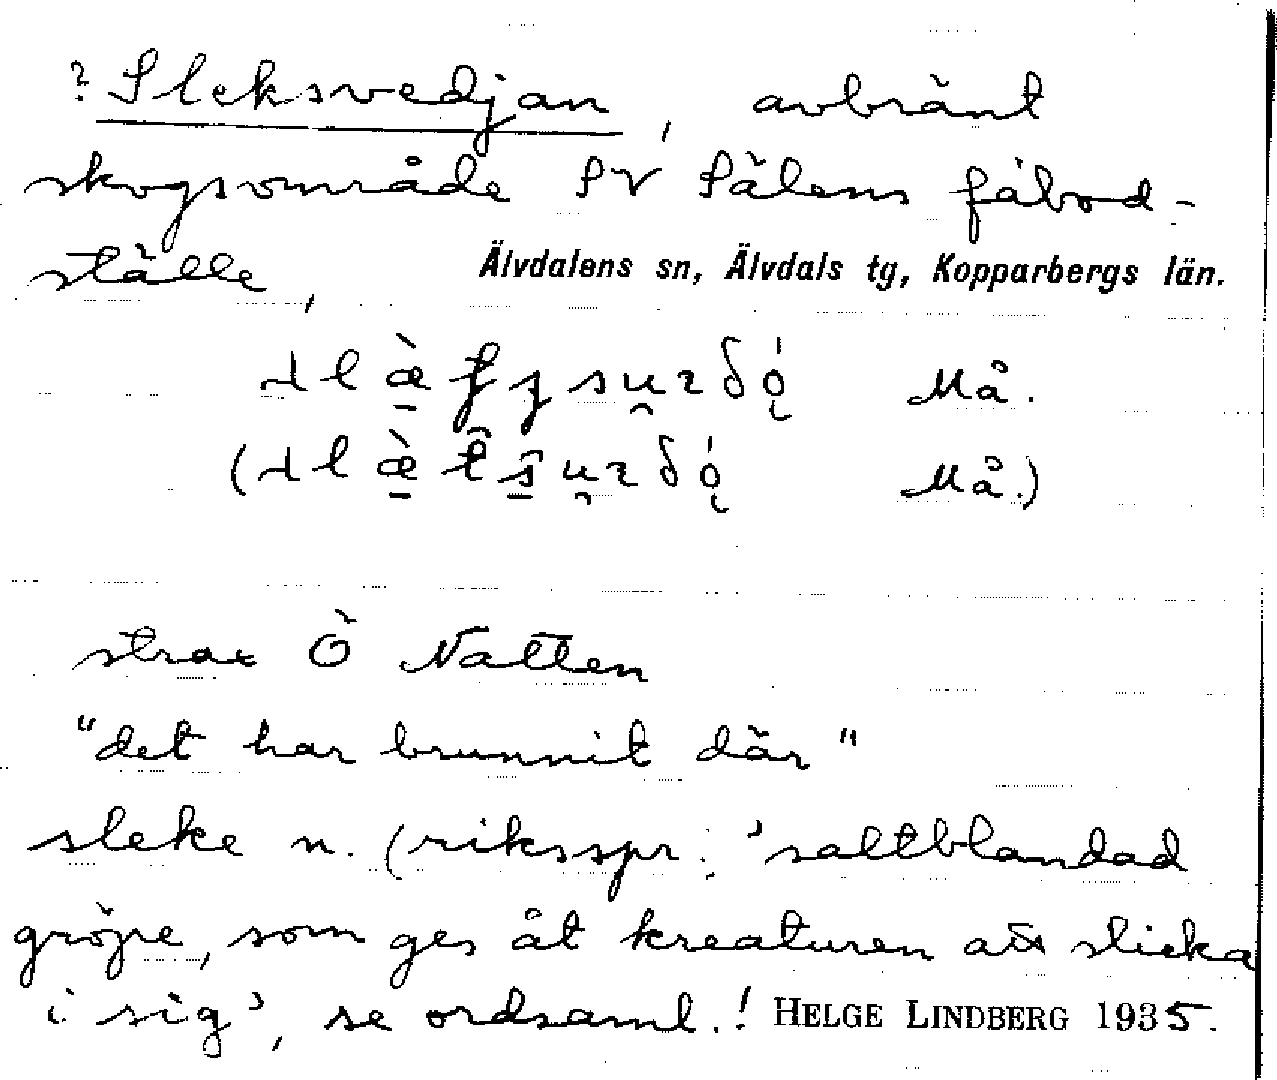 ? Sleksvedjan, avbränt
skogsområde SV Sälens fäbod-
ställe, Älvdalens sn, Älvdals tg, Kopparbergs län.
Må.
Må.)
strax Ö Natten
"det har brunnit där"
sleke n. (riksspr. 'saltblandad
gröpe, som ges åt kreaturen att slicka
i sig', se ordsaml.! HELGE LINDBERG 1935.